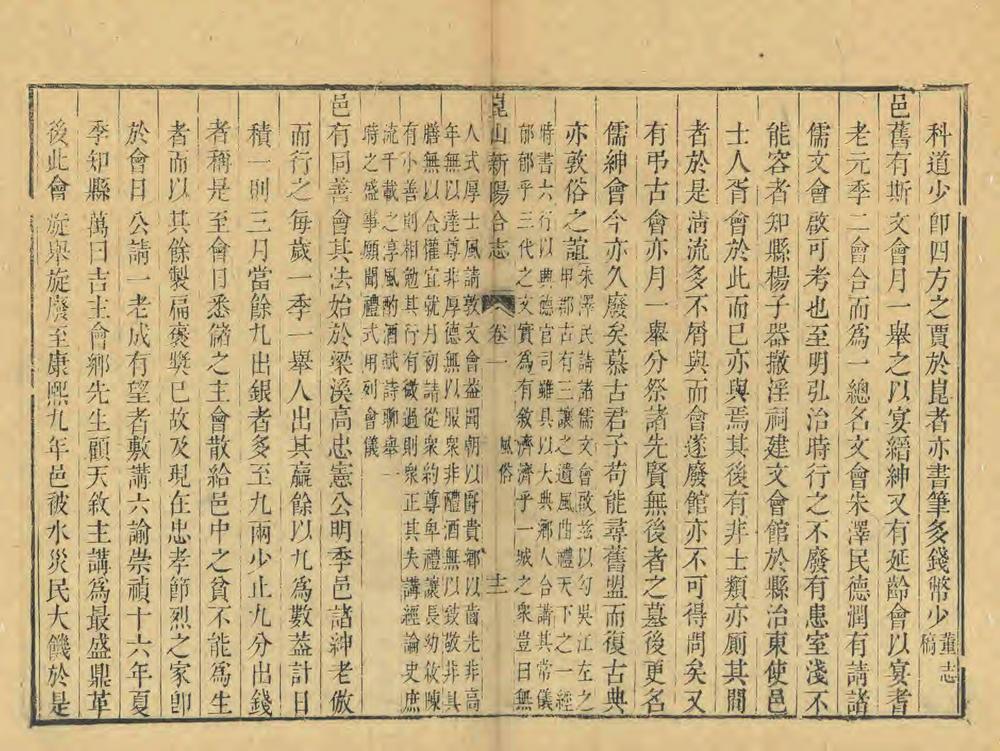 科道少卽四方之賈於崑者亦書筆多錢幣少董志稿
邑舊有斯文會月一舉之以宴縉紳又有延齡會以宴耆
老元季二會合而爲一總名文會朱澤民德潤有請諸
儒文會啟可考也至明弘治時行之不廢有患室淺不
能容者知縣楊子器撤淫祠建文會館於縣治東使邑
士人胥會於此而已亦與焉其後有非士類亦厠其間
者於是淸流多不屑與而會遂廢館亦不可得問矣又
有弔古會亦月一舉分祭諸先賢無後者之墓後更名
儒紳會今亦久廢矣慕古君子苟能尋舊盟而復古典
亦敦俗之誼
朱澤民請諸儒文會啟茲以勾吳江左之
甲郡古有三讓之遺風曲禮天下之一經
時書六行以典德官司雖具以大典鄕人合講其常儀
郁郁乎三代之文實爲有敘濟濟乎一城之衆豈曰無
崑山新陽合志 卷一 風俗 十一
人式厚士風請敦文會蓋聞朝以爵貴鄕以齒先非高
年無以達尊非厚德無以服衆非醴酒無以致敬非具
膳無以合懽宜就月初請從衆約尊卑禮讓長幼敘陳
有小善則相勉其行有微過則衆正其失講經論史庶
流千載之淳風酌酒賦詩聊舉一
時之盛事願聞禮式用列會儀
邑有同善會其法始於梁溪高忠憲公明季邑諸紳老倣
而行之每歲一季一舉人出其贏餘以九爲數蓋計日
積一則三月當餘九出銀者多至九兩少止九分出錢
者稱是至會日悉儲之主會散給邑中之貧不能爲生
者而以其餘製扁褒獎已故及現在忠孝節烈之家卽
於會日公請一老成有望者敷講六諭崇禎十六年夏
季知縣萬曰吉主會鄕先生顧天敘主講爲最盛鼎革
後此會旋舉旋廢至康熙九年邑被水災民大饑於是